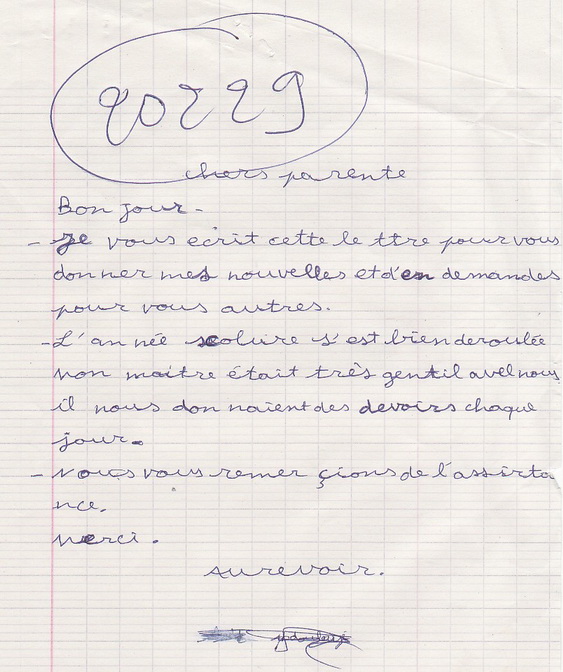 20229
chers parente
Bon jour.
- Je vous ecrit cette le ttre pour vous
don ner mes nouvelles et d'en demandes
pour vous autres.
- L'an née scolure s'est bien deroulée
non maitre était très gentil avel nous
il nous don naient des devoirs chaque
jour.
- Nous vous remer çions de l'assirta
nce.
Merci.
Au revoir.